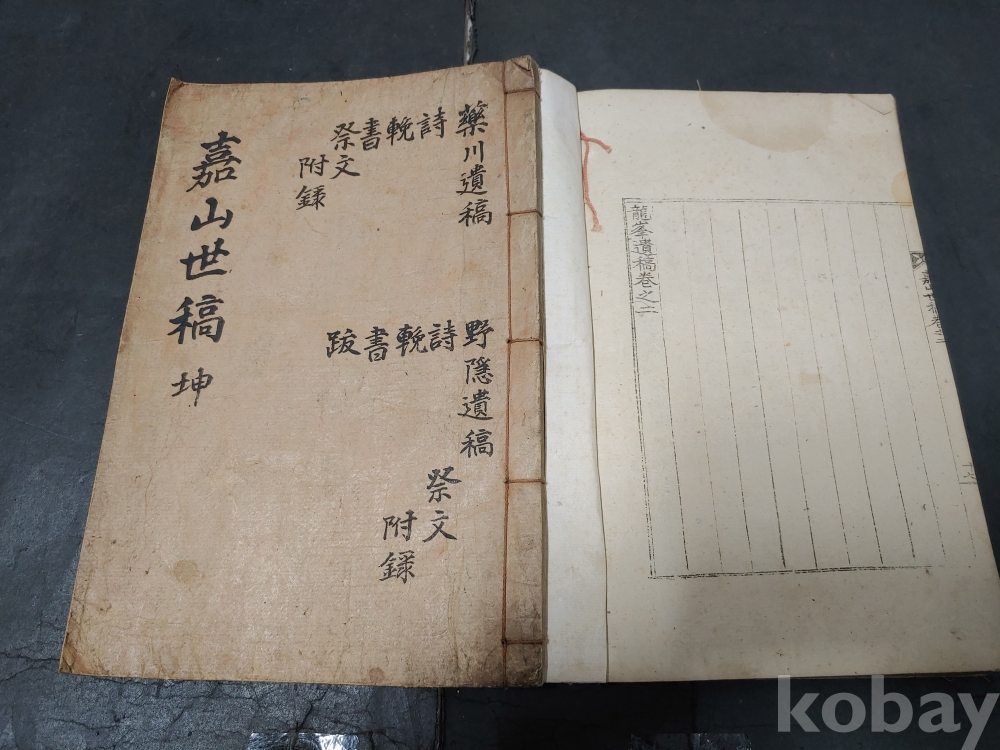 嘉山世稿 坤
藥川遺稿
詩
輓
書
祭文
附錄
野隱遺稿
詩
輓
書
跋
祭文
附錄
龍峯遺稿卷之二
kobay